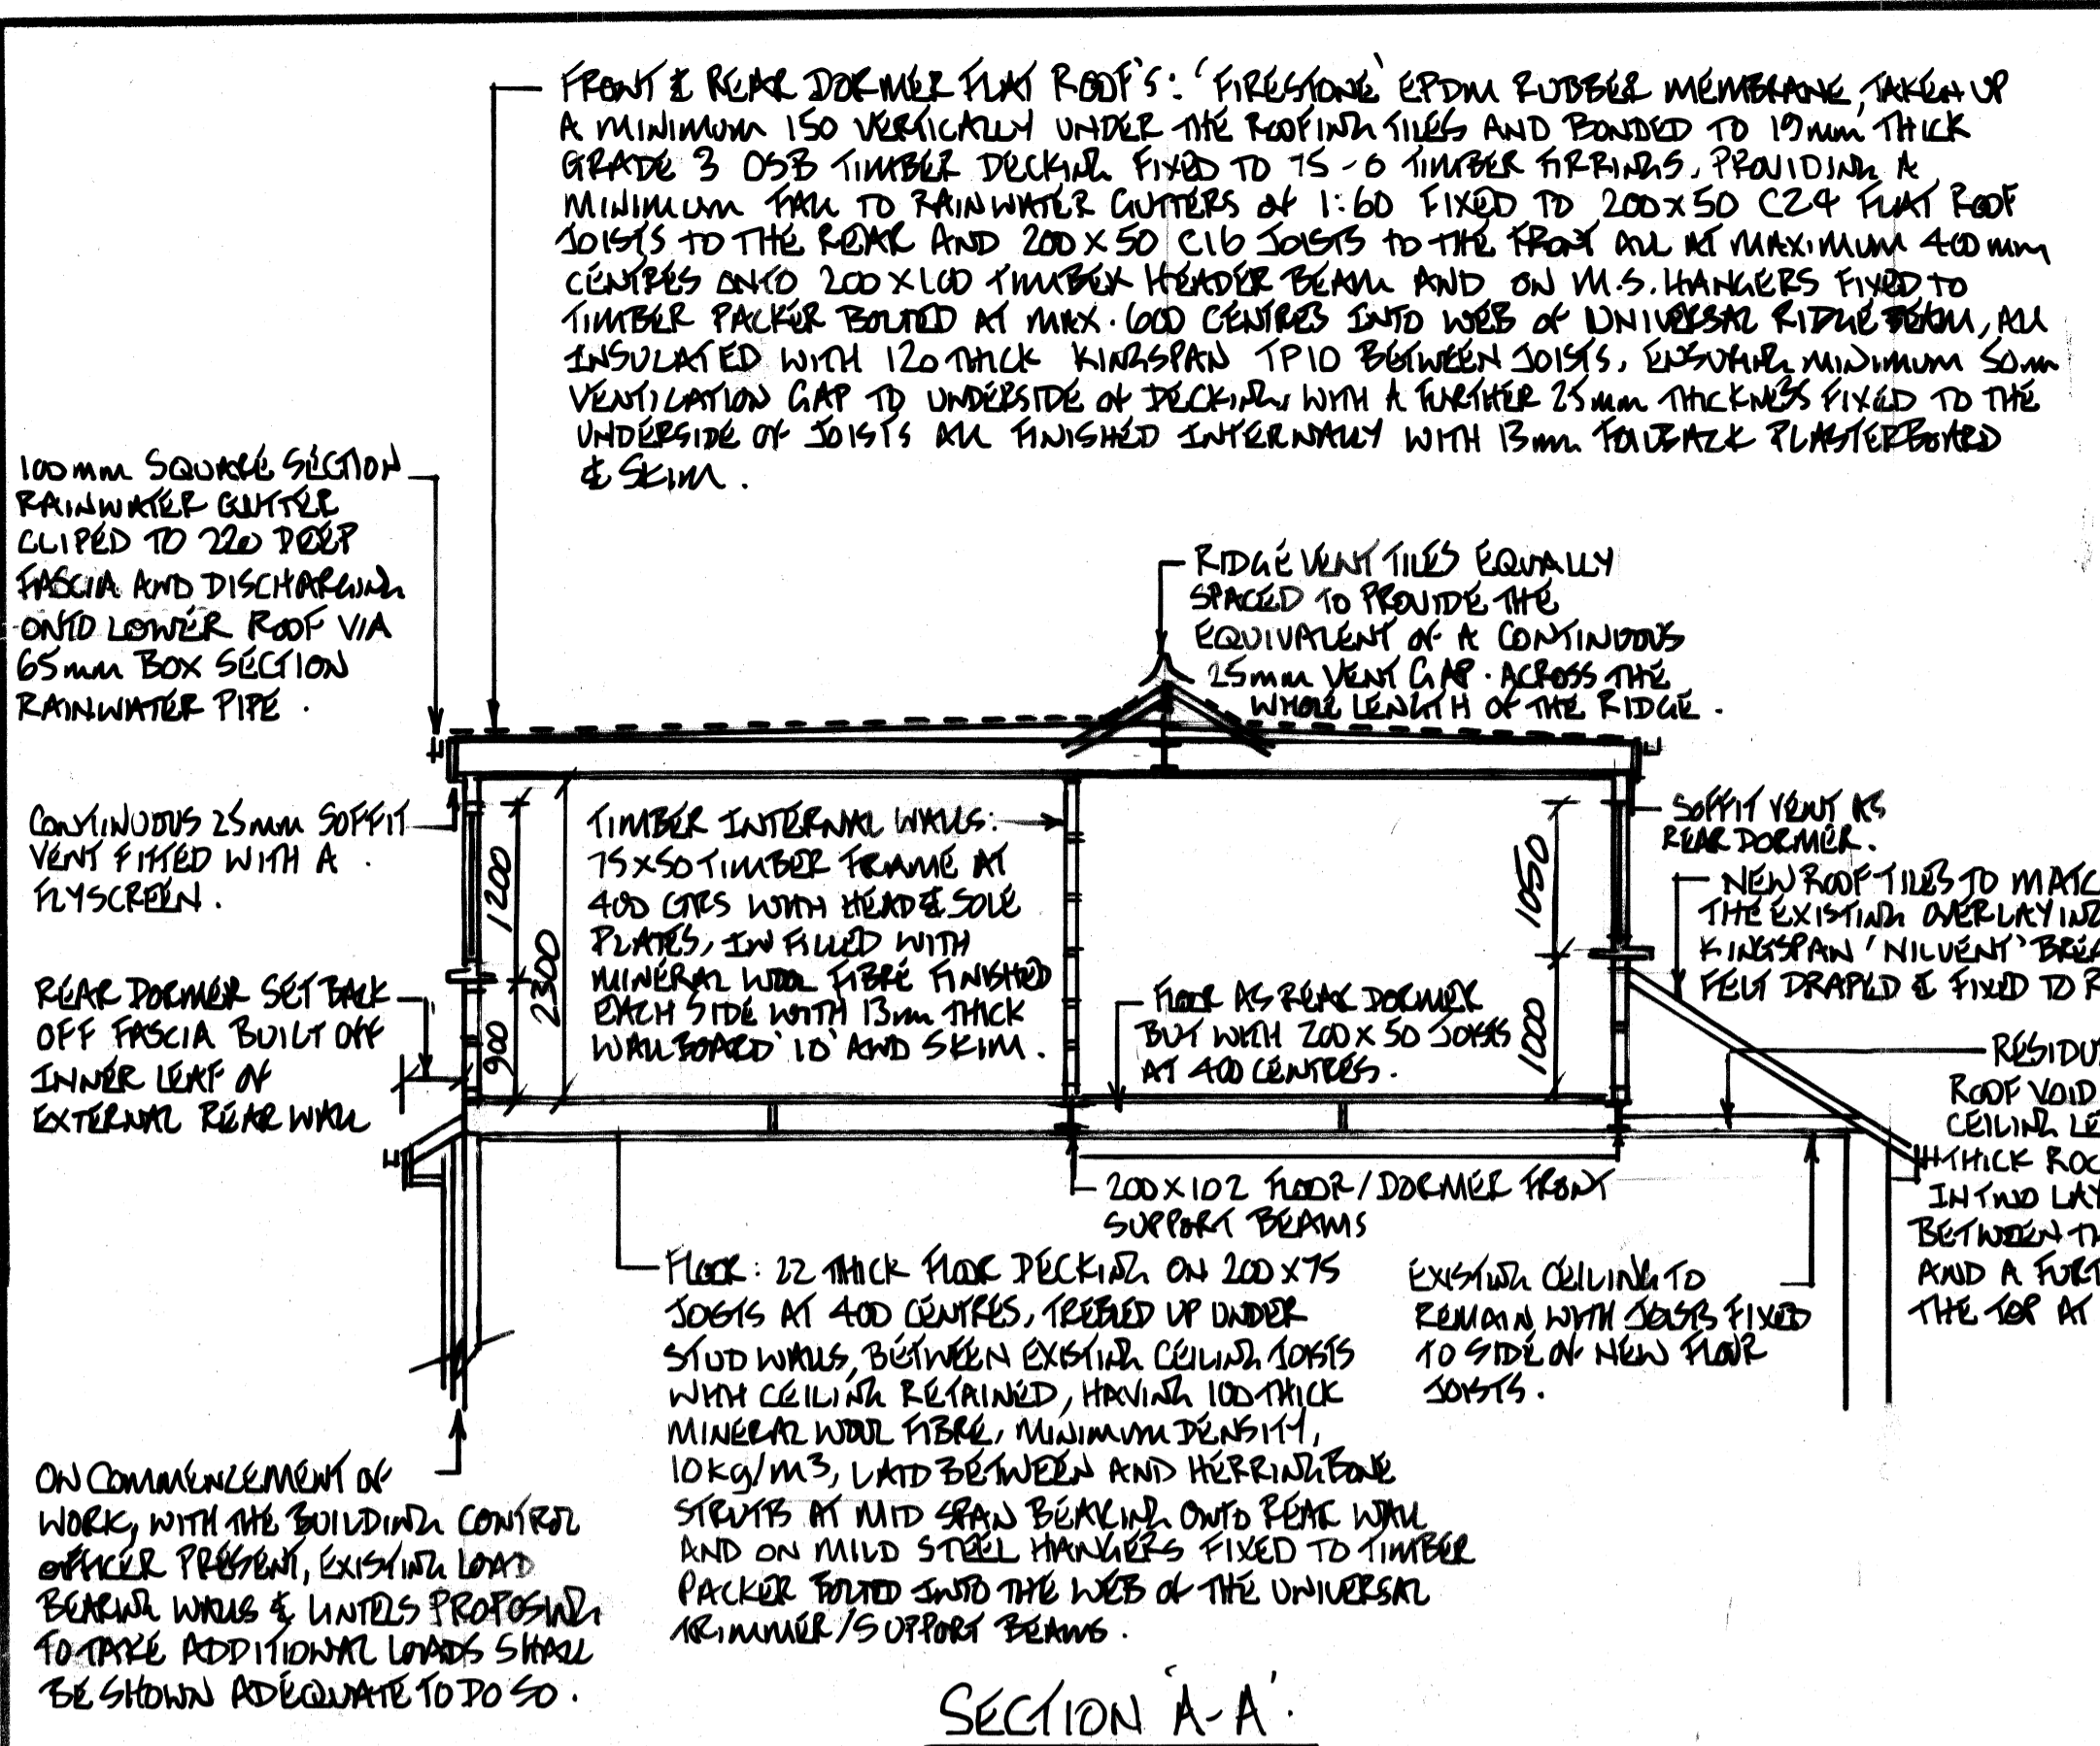 FRONT & REAR DORMER FLAT ROOF'S: 'FIRESTONE' EPDM RUBBER MEMBRANE, TAKEN UP
A MINIMUM 150 VERTICALLY UNDER THE ROOFING TILES AND BONDED TO 19mm THICK
GRADE 3 OSB TIMBER DECKING FIXED TO 75-0 TIMBER FIRRINGS, PROVIDING A
MINIMUM FALL TO RAINWATER GUTTERS OF 1:60 FIXED TO 200x50 C24 FLAT ROOF
JOISTS TO THE REAR AND 200x50 C16 JOISTS TO THE FRONT ALL AT MAXIMUM 400mm
CENTRES ONTO 200x100 TIMBER HEADER BEAM AND ON M.S. HANGERS FIXED TO
TIMBER PACKER BOLTED AT MAX. 600 CENTRES INTO WEB OF UNIVERSAL RIDGE BEAM, ALL
INSULATED WITH 120 THICK KINGSPAN TP10 BETWEEN JOISTS, ENSURING MINIMUM 50mm
VENTILATION GAP TO UNDERSIDE OF DECKING, WITH A FURTHER 25mm THICKNESS FIXED TO THE
UNDERSIDE OF JOISTS ALL FINISHED INTERNALLY WITH 13mm FOILBACK PLASTERBOARD
& SKIM.
100mm SQUARE SECTION
RAINWATER GUTTER
CLIPED TO 220 DEEP
FASCIA AND DISCHARGING
ONTO LOWER ROOF VIA
65mm BOX SECTION
RAINWATER PIPE.
RIDGE VENT TILES EQUALLY
SPACED TO PROVIDE THE
EQUIVALENT OF A CONTINUOUS
25mm VENT GAP. ACROSS THE
WHOLE LENGTH OF THE RIDGE.
CONTINUOUS 25mm SOFFIT
VENT FITTED WITH A
FLYSCREEN.
1200
2300
900
TIMBER INTERNAL WALLS:
75x50 TIMBER FRAME AT
400 CTRS WITH HEAD & SOLE
PLATES, IN FILLED WITH
MINERAL WOOL FIBRE FINISHED
EACH SIDE WITH 13mm THICK
WALLBOARD '10' AND SKIM.
1050
1000
SOFFIT VENT AS
REAR DORMER.
NEW ROOF TILES TO MATC
THE EXISTING OVERLAYING
KINGSPAN 'NILVENT' BREA
FELT DRAPED & FIXED TO R
REAR DORMER SET BACK
OFF FASCIA BUILT OFF
INNER LEAF OF
EXTERNAL REAR WALL
FLOOR AS REAR DORMER
BUT WITH 200x50 JOISTS
AT 400 CENTRES.
RESIDU
ROOF VOID
CEILING LE
THICK ROC
IN TWO LAY
BETWEEN TH
AND A FURT
THE TOP AT
200x102 FLOOR/DORMER FRONT
SUPPORT BEAMS
FLOOR: 22 THICK FLOOR DECKING ON 200x75
JOISTS AT 400 CENTRES, TREBLED UP UNDER
STUD WALLS, BETWEEN EXISTING CEILING JOISTS
WITH CEILING RETAINED, HAVING 100 THICK
MINERAL WOOL FIBRE, MINIMUM DENSITY,
10kg/m3, LAID BETWEEN AND HERRINGBONE
STRUTS AT MID SPAN BEARING ONTO REAR WALL
AND ON MILD STEEL HANGERS FIXED TO TIMBER
PACKER BOLTED INTO THE WEB OF THE UNIVERSAL
TRIMMER/SUPPORT BEAMS.
EXISTING CEILING TO
REMAIN WITH JOISTS FIXED
TO SIDE OF NEW FLOOR
JOISTS.
ON COMMENCEMENT OF
WORK, WITH THE BUILDING CONTROL
OFFICER PRESENT, EXISTING LOAD
BEARING WALLS & LINTELS PROPOSING
TO TAKE ADDITIONAL LOADS SHALL
BE SHOWN ADEQUATE TO DO SO.
SECTION 'A-A'.